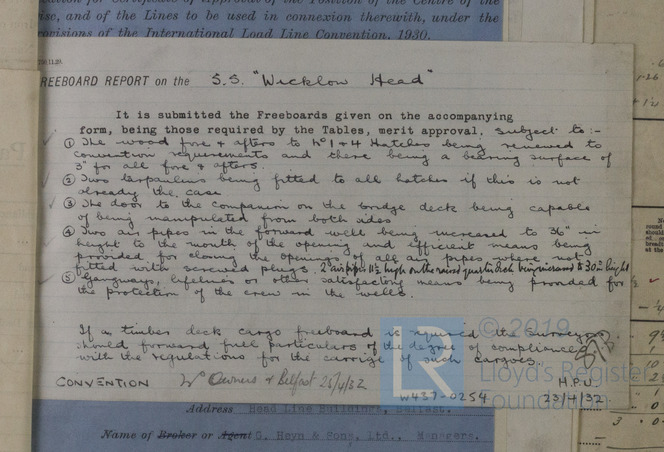 ise, and of the Lines to be used in connexion therewith, under the
rovisions of the International Load Line Convention, 1930.
REEBOARD REPORT on the S.S. "Wicklow Head"
It is submitted the Freeboards given on the accompanying
form, being those required by the Tables, merit approval. subject to :-
① The wood fore & afters to No 1 & 4 Hatches being renewed to
convention requirements and there being a bearing surface of
3" for all fore & afters.
② Two tarpaulins being fitted to all hatches if this is not
already the case
③ The door to the companion on the bridge deck being capable
of being manipulated from both sides
④ Two air pipes in the forward well being increased to 36" in
height to the mouth of the opening and efficient means being
provided for closing the openings of all air pipes where not
fitted with screwed plugs. 2 air pipes high on the raised quarter deck being increased to 30" height
⑤ Gangways, lifelines or other satisfactory means being provided for
the protection of the crew in the wells.
If a timber deck cargo freeboard is required the Surveyors
should forward full particulars of the degree of compliance
with the regulations for the carriage of such cargoes.
CONVENTION Owners & Belfast 25/4/32
H.P.U.
W437-0254 23/4/32.
© 2019
LR Lloyd's Register
Foundation
Address Head Line Buildings, Belfast.
Name of Broker or Agent G. Heyn & Sons, Ltd., Managers.